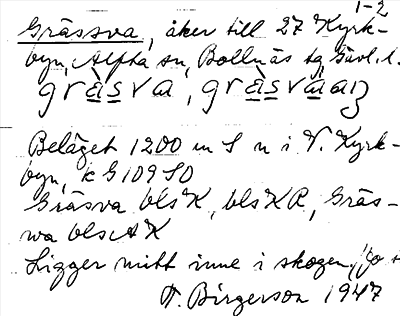 1-2
Grässva, åker till 27 Kyrk-
byn, Alfta sn, Bollnäs tg Gävl. l.
gràsva, gràsvaan
Beläget 1200 m S n i V. Kyrk-
byn, k G 109 SO
Gräsva bls K, bls KR, Gräs-
wa bls AK
Ligger mitt inne i skogen,
H. Birgerson 1947